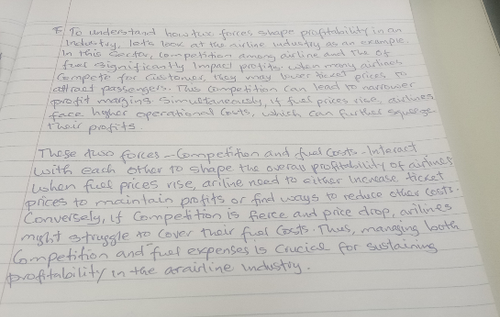 F. To understand how two forces shape profitability in an
Industry, let's look at the airline industry as an example
In this sector, competition among airline and the of
fuel significantly impact profits. when many airlines
compete for customer, they may lower ticket prices to
attract passengers. This competition can lead to narrower
profit margins simultaneously, if fuel prices rise, airlines
face higher operational costs, which can further squeeze
their profits.
These two forces - Competition and fuel costs - Interact
with each other to shape the overall profitability of airlines
when fuel prices rise, ariline need to either increase ticket
prices to maintain profits or find ways to reduce other costs.
Conversely, if competition is fierce and price drop, arilines
might struggle to cover their fuel costs. Thus, managing both
Competition and fuel expenses is crucial for sustaining
profitability in the arairline industry.